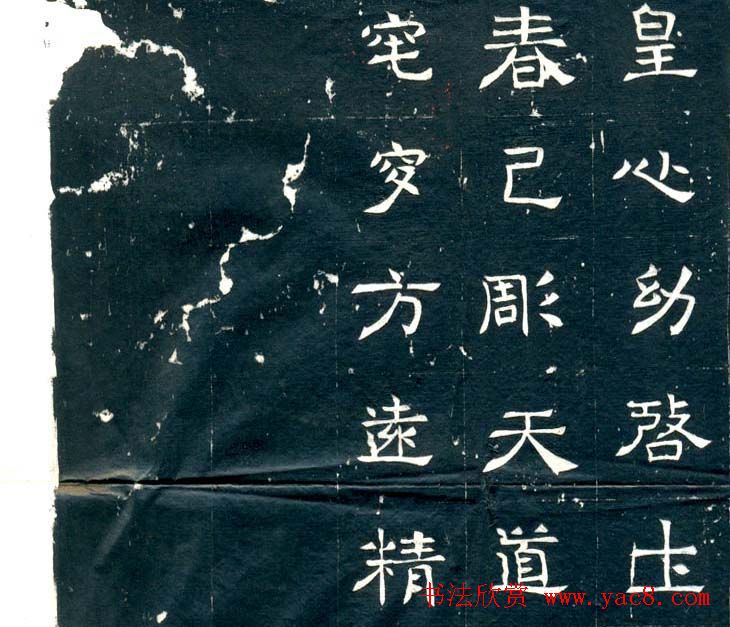 皇心幼啓
春已彫天道
窀穸方遠精
书法欣赏 www.yac8.com